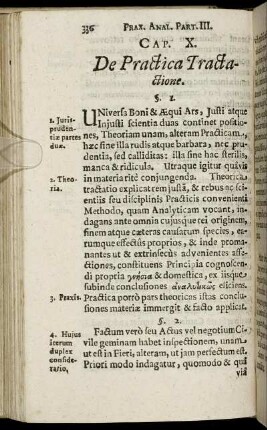 336 PRAX. ANAL. PART. III.
CAP. X.
De Practica Tracta-
ctione.
§. 1.
UNiversa Boni & Æqui Ars, Justi atque
1. Juris-
pruden-
tiæ partes
duæ.
Injusti scientia duas continet positio-
nes, Theoriam unam, alteram Practicam,
hæc sine illa rudis atque barbara, nec pru-
dentia, sed calliditas: illa sine hac sterilis,
manca & ridicula. Utraque igitur quivis
2. Theo-
ria.
in materia ritè conjungenda. Theorica
tractatio explicatrem justâ, & rebus ac sci-
entiis seu disciplinis Practicis convenienti
Methodo, quam Analyticam vocant, in-
dagans ante omnia cujusque rei originem,
finem atque cæteras causarum species, ea-
rumque effectus proprios, & inde proma-
nantes ut & extrinsecùs advenientes affe-
ctiones, constituens Principia cognoscen-
di propria γνήσια & domestica, ex iisque
subinde conclusiones ἀναλυτικῶς eliciens.
3. Praxis.
Practica porrò pars theoricas istas conclu-
siones materiæ immergit & facto applicat.
§. 2.
4. Hujus
iterum
duplex
conside-
ratio,
Factum verò seu Actus vel negotium Ci-
vile geminam habet inspectionem, unam,
ut est in Fieri, alteram, ut jam perfectum est.
Priori modo indagatur, quomodo & quî
viâ